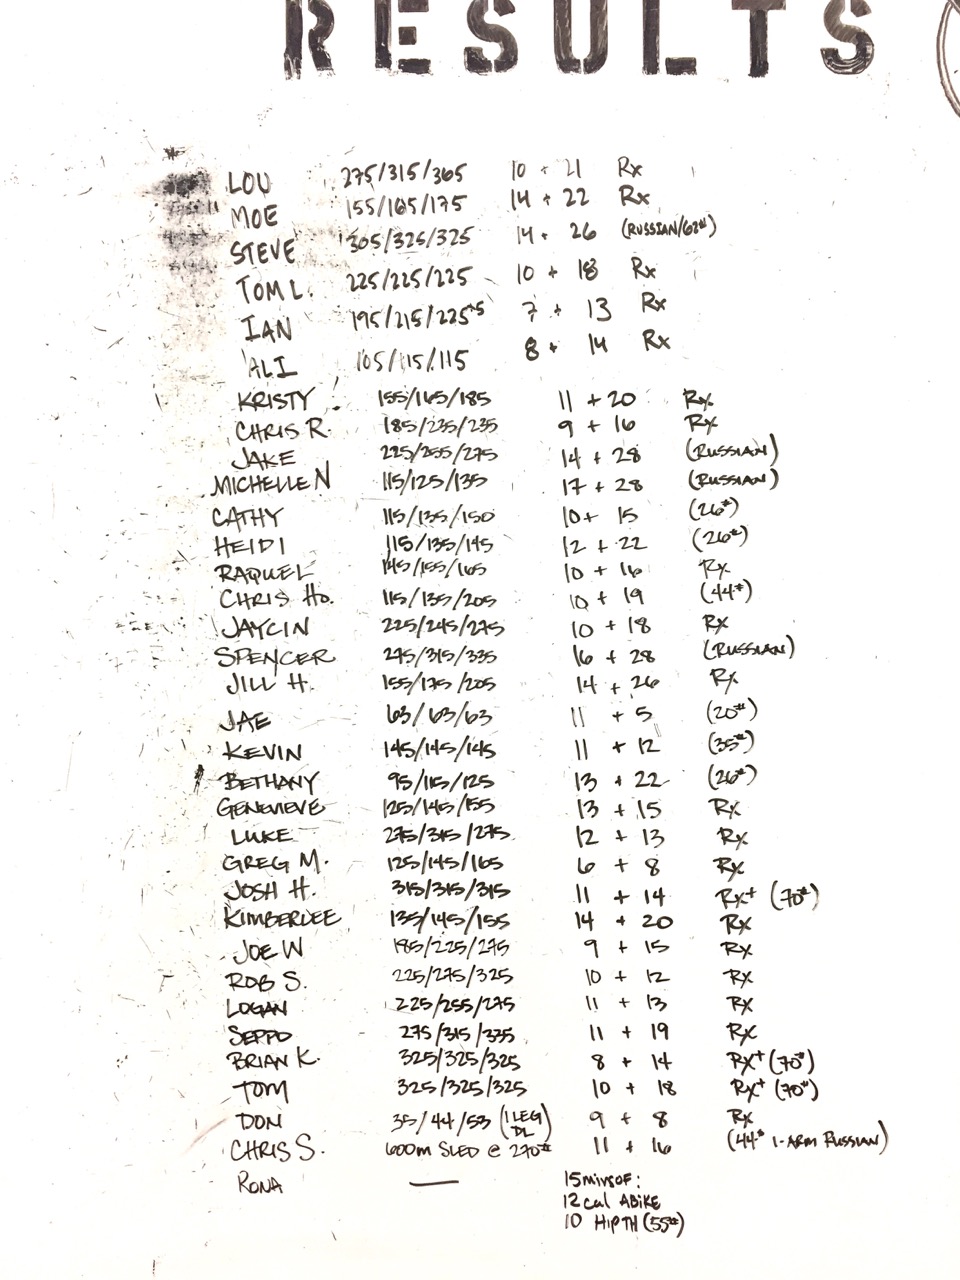 RESULTS
LOU 275/315/365 10 + 21 Rx
MOE 155/165/175 14 + 22 Rx
STEVE 305/325/325 14 + 26 (RUSSIAN/62#)
TOM L. 225/225/225 10 + 18 Rx
IAN 195/215/225 7 + 13 Rx
ALI 105/115/115 8 + 14 Rx
KRISTY 155/165/185 11 + 20 Rx
CHRIS R. 185/235/235 9 + 16 Rx
JAKE 225/255/275 14 + 28 (RUSSIAN)
MICHELLE N 115/125/135 17 + 28 (RUSSIAN)
CATHY 115/135/150 10 + 15 (26#)
HEIDI 115/135/145 12 + 22 (26#)
RAQUEL 145/155/165 10 + 16 Rx
CHRIS Ho. 115/135/205 10 + 19 (44#)
JAYCIN 225/245/275 10 + 18 Rx
SPENCER 275/315/335 16 + 28 (RUSSIAN)
JILL H. 155/175/205 14 + 26 Rx
JAE 63/63/63 11 + 5 (20#)
KEVIN 145/145/145 11 + 12 (35#)
BETHANY 95/115/125 13 + 22 (26#)
GENEVIEVE 125/145/155 13 + 15 Rx
LUKE 275/315/275 12 + 13 Rx
GREG M. 125/145/165 6 + 8 Rx
JOSH H. 315/315/315 11 + 14 Rx+ (70#)
KIMBERLEE 135/145/155 14 + 20 Rx
JOE W 185/225/275 9 + 15 Rx
ROB S. 225/275/325 10 + 12 Rx
LOGAN 225/255/275 11 + 13 Rx
SEPPO 275/315/335 11 + 19 Rx
BRIAN K. 325/325/325 8 + 14 Rx+ (70#)
TOM 325/325/325 10 + 18 Rx+ (70#)
DON 35/44/53 (1 LEG DL) 9 + 8 Rx
CHRIS S. 600m SLED @ 270# 11 + 16 (44# 1-ARM RUSSIAN)
RONA — 15 mins OF:
12 cal ABIKE
10 HIP TH (55#)